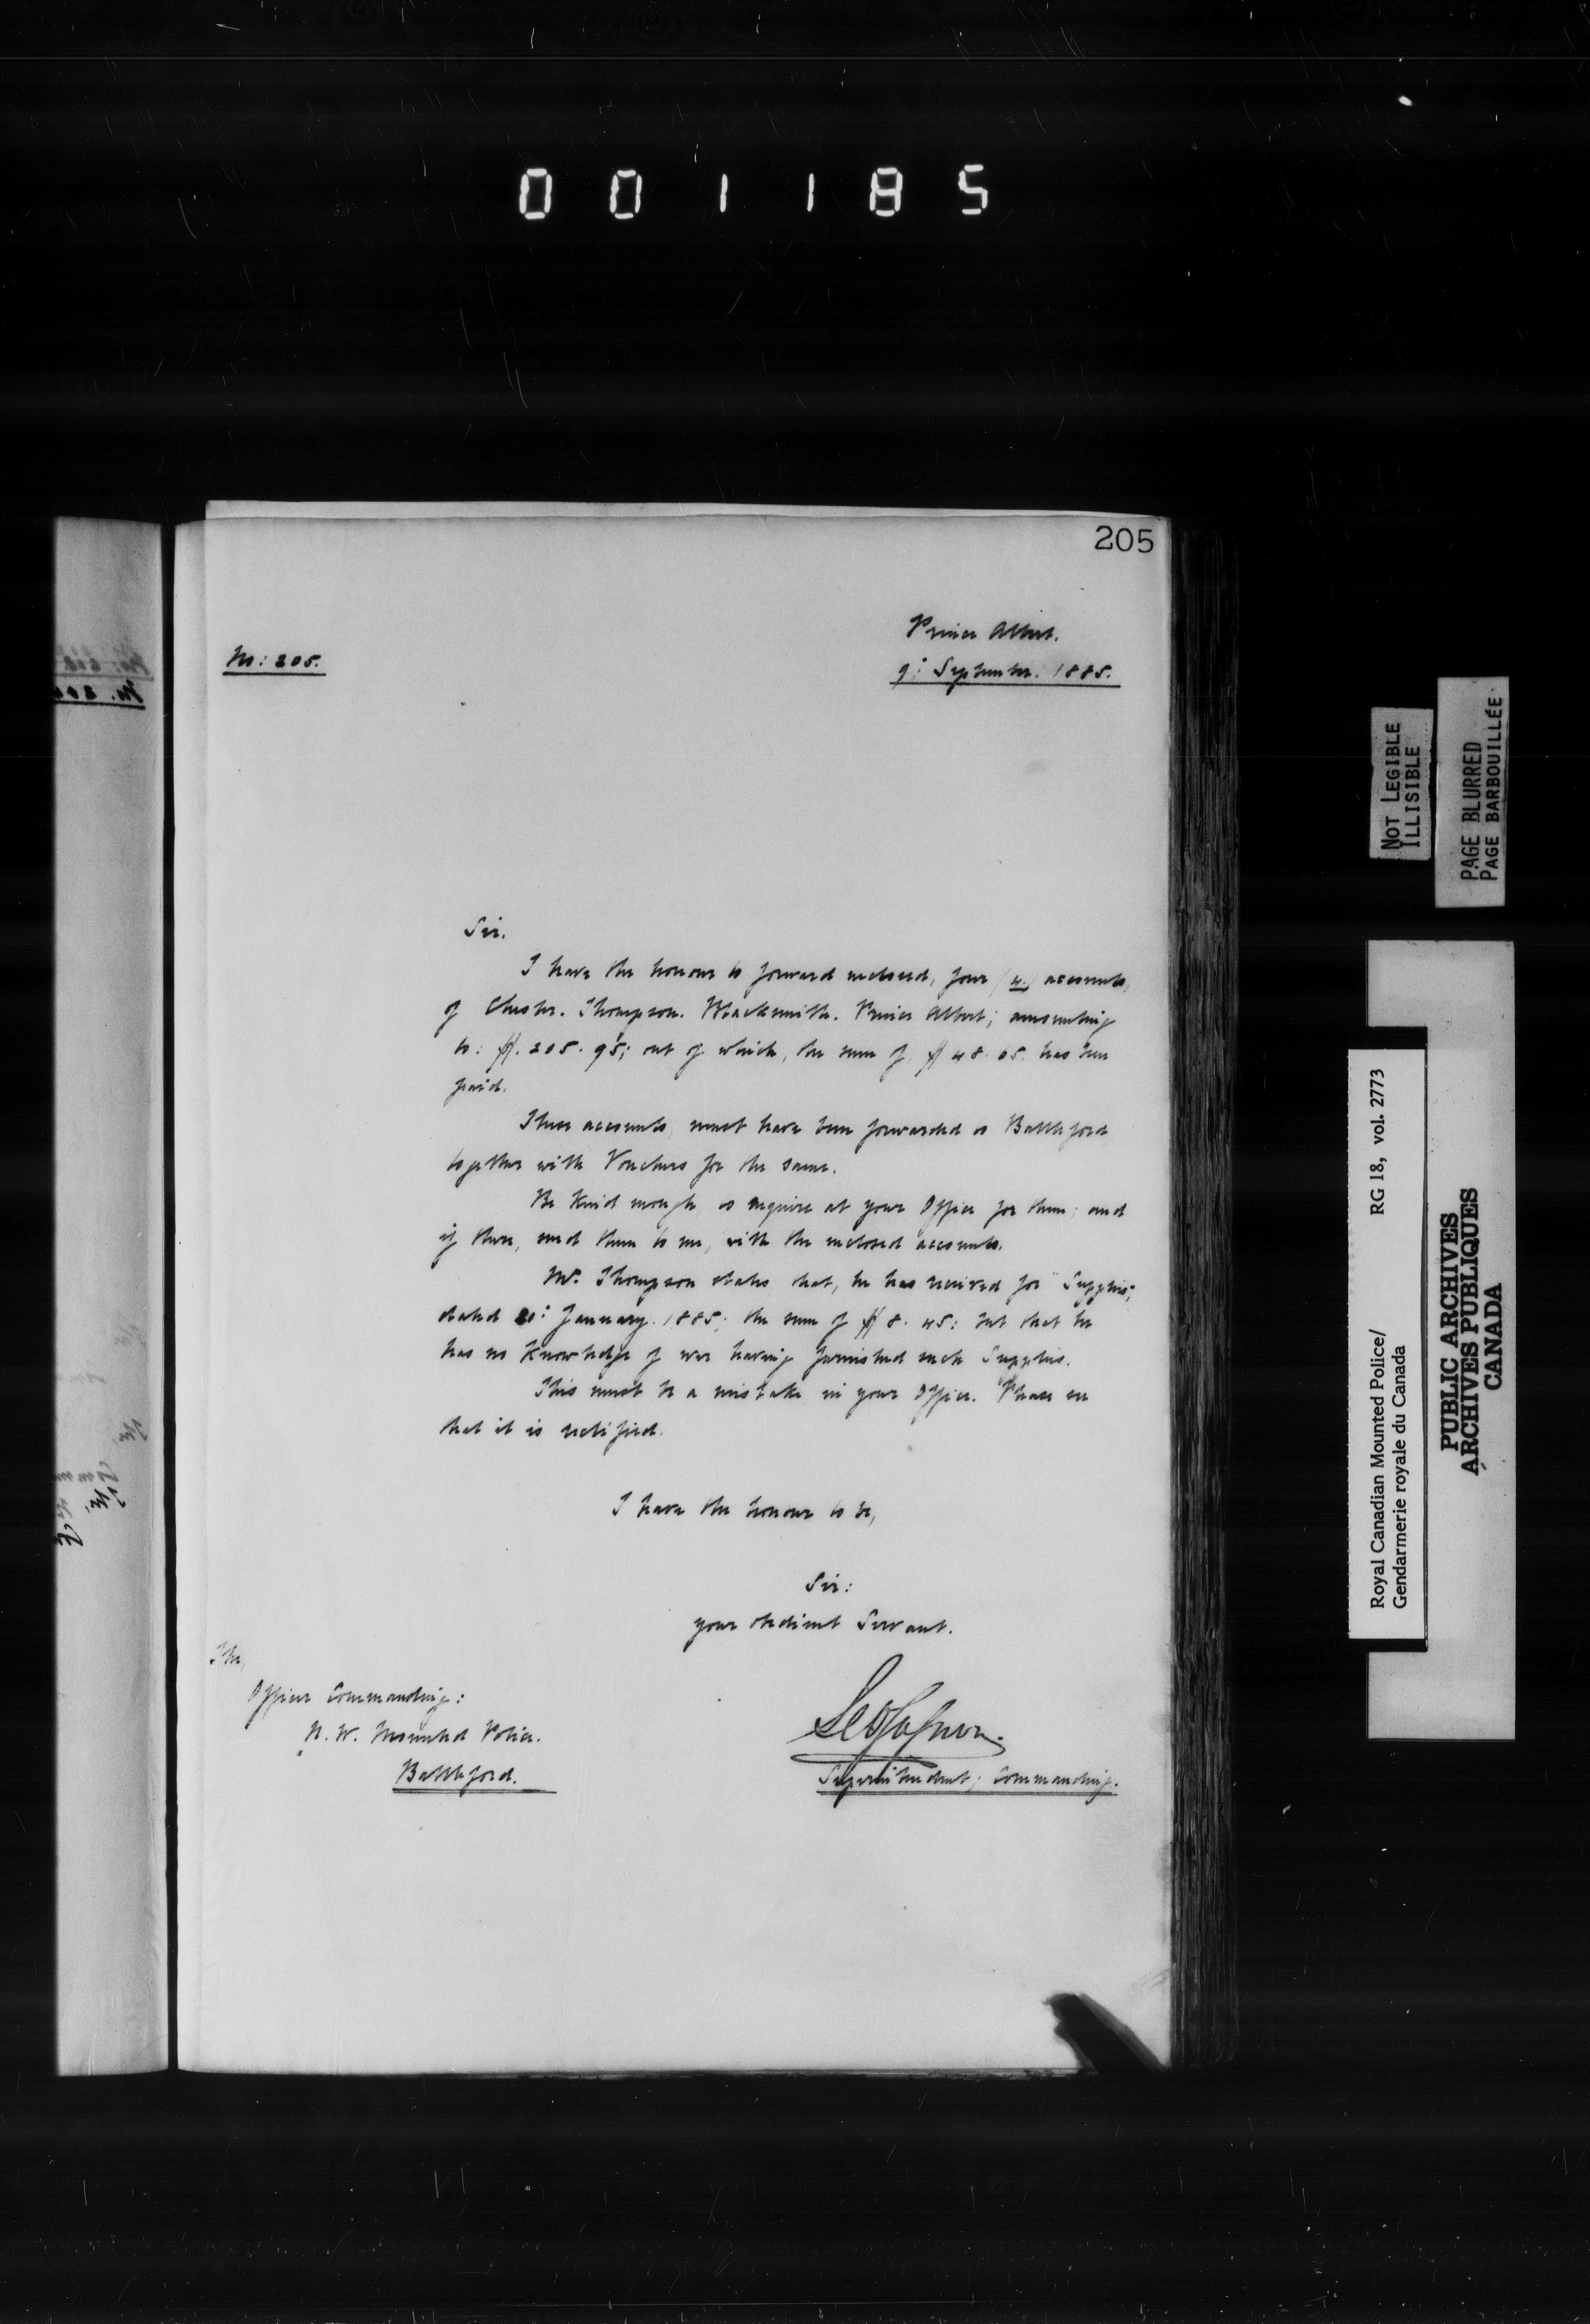 001185
205
Prince Albert.
No: 205.
9: September. 1885.
Sir.
I have the honour to forward enclosed, four (4.) accounts,
of Chester. Thompson. Blacksmith. Prince Albert; amounting
to: $. 205. 95; out of which, the sum of $ 48. 05. has been
paid.
These accounts, must have been forwarded to Battleford
together with Vouchers for the same.
Be Kind enough to enquire at your Office for them; and
if there, send them to me, with the enclosed accounts.
Mr. Thompson states that, he has received for "Supplies",
dated January. 1885; the sum of $ 8. 45: but that he
has no Knowledge of ever having furnished such Supplies.
This must be a mistake in your Office. Please see
that it is rectified.
I have the honour to be,
Sir:
your obedient Servant.
The,
Officer Commanding:
N. W. Mounted Police.
Battleford.
Superintendent; Commanding.
NOT LEGIBLE
ILLISIBLE
PAGE BLURRED
PAGE BARBOUILLÉE
Royal Canadian Mounted Police/ RG 18, vol. 2773
Gendarmerie royale du Canada
PUBLIC ARCHIVES
ARCHIVES PUBLIQUES
CANADA